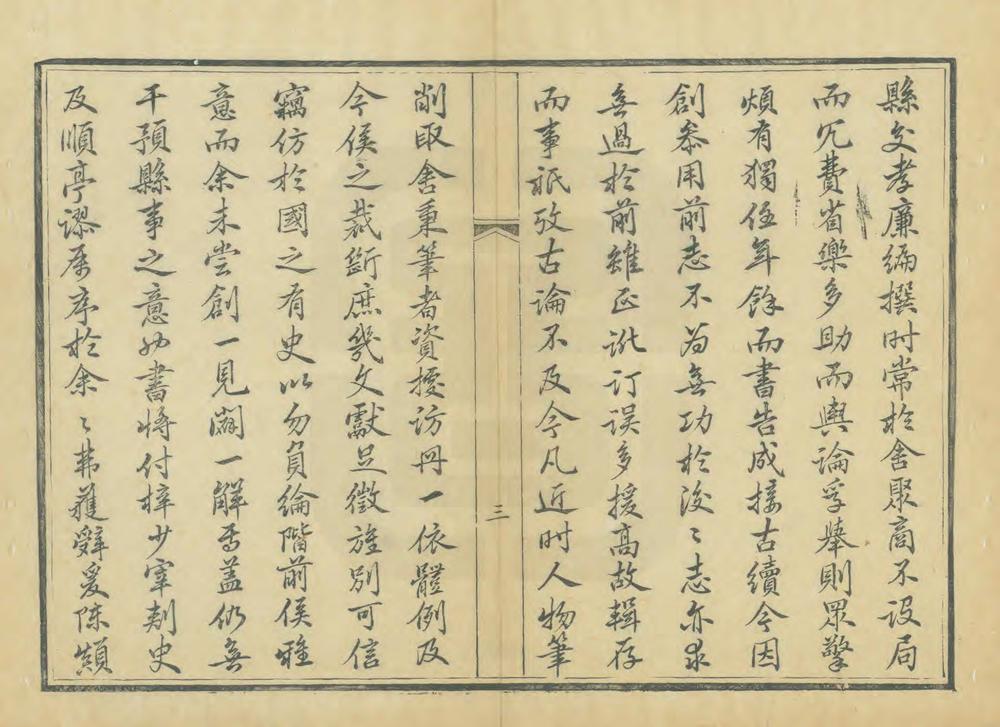 縣交孝廉編撰时常於舍聚商不设局
而冗費省樂多助而輿論孚舉則眾擎
煩有獨任年餘而書告成接古續今因
創叅用前志不为無功於後〻志亦求
無過於前雖正訛订误多援高故輯存
而事祇攷古論不及今凡近时人物筆
三
削取舍秉筆者資擾访冊一依體例及
今侯之裁斷庶幾文獻足徵旌別可信
竊仿於國之有史以勿負綸階前侯雅
意而余未尝創一見闢一解焉盖仍無
干預縣事之意也書將付梓少宰剌史
及順亭謬屬序於余〻弗獲辭爰陈顛